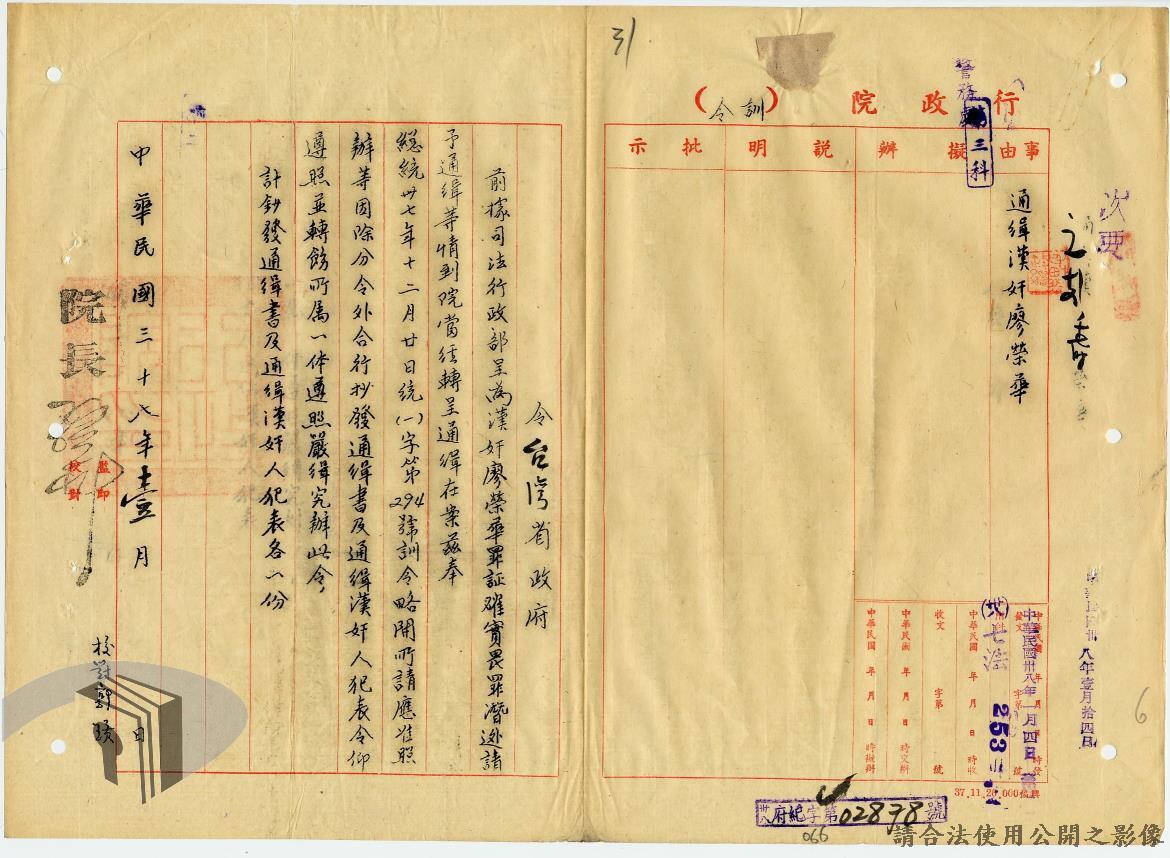 31
行政院（訓令）
第三科
事由
擬辦
說明
批示
次要
通緝漢奸廖榮華
中華民國卅八年壹月拾四日
6
中華民國卅八年一月四日
發文
字第
號
收文
字第
號
中華民國 年 月 日 時收
中華民國 年 月 日 時交辦
中華民國 年 月 日 時擬辦
253
37.11.20,000
卅八府紀字第02878號
066
令台灣省政府
前據司法行政部呈為漢奸廖榮華罪証確實畏罪潛逃請
予通緝等情到院當經轉呈通緝在案茲奉
總統卅七年十二月廿日統(一)字第294號訓令略開所請應准照
辦等因除分令外合行抄發通緝書及通緝漢奸人犯表令仰
遵照並轉飭所属一体遵照嚴緝究辦此令
計鈔發通緝書及通緝漢奸人犯表各一份
中華民國三十八年壹月 日
院長
監印
校對
校對郭
請合法使用公開之影像